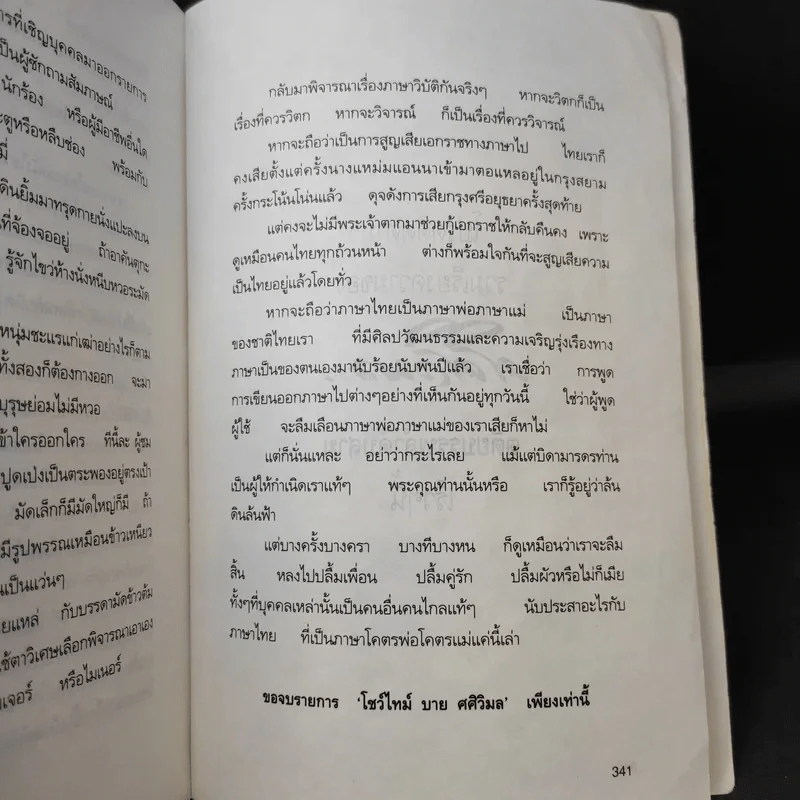 ารที่เชิญบุคคลมาออกรายการ
ป็นผู้ซักถามสัมภาษณ์
นักร้อง หรือผู้มีอาชีพอื่นใด
ะตูหรือหลืบช่อง พร้อมกับ
มี่
ดินยิ้มมาทรุดกายนั่งแปะลงบน
ที่จ้องจออยู่ ถ้าอาคันตุกะ
รู้จักไขว่ห้างนั่งหนีบหวอระมัด
หนุ่มชะแรแก่เฒ่าอย่างไรก็ตาม
ทั้งสองก็ต้องกางออก จะมา
บุรุษย่อมไม่มีหวอ
ข้าใครออกใคร ทีนี้ละ ผู้ชม
ปูดเป่งเป็นตะพองอยู่ตรงเป้า
มัดเล็กก็มีมัดใหญ่ก็มี ถ้า
มีรูปพรรณเหมือนข้าวเหนียว
นเป็นแว่นๆ
ยแหล่ กับบรรดามัดข้าวต้ม
ช้ตาวิเศษเลือกพิจารณาเอาเอง
มเจอร์ หรือไมเนอร์
กลับมาพิจารณาเรื่องภาษาวิบัติกันจริงๆ หากจะวิตกก็เป็น
เรื่องที่ควรวิตก หากจะวิจารณ์ ก็เป็นเรื่องที่ควรวิจารณ์
หากจะถือว่าเป็นการสูญเสียเอกราชทางภาษาไป ไทยเราก็
คงเสียตั้งแต่ครั้งนางแหม่มแอนนาเข้ามาตอแหลอยู่ในกรุงสยาม
ครั้งกระโน้นโน่นแล้ว ดุจดังการเสียกรุงศรีอยุธยาครั้งสุดท้าย
แต่คงจะไม่มีพระเจ้าตากมาช่วยกู้เอกราชให้กลับคืนคง เพราะ
ดูเหมือนคนไทยทุกถ้วนหน้า ต่างก็พร้อมใจกันที่จะสูญเสียความ
เป็นไทยอยู่แล้วโดยทั่ว
หากจะถือว่าภาษาไทยเป็นภาษาพ่อภาษาแม่ เป็นภาษา
ของชาติไทยเรา ที่มีศิลปวัฒนธรรมและความเจริญรุ่งเรืองทาง
ภาษาเป็นของตนเองมานับร้อยนับพันปีแล้ว เราเชื่อว่า การพูด
การเขียนออกภาษาไปต่างๆอย่างที่เห็นกันอยู่ทุกวันนี้ ใช่ว่าผู้พูด
ผู้ใช้ จะลืมเลือนภาษาพ่อภาษาแม่ของเราเสียก็หาไม่
แต่ก็นั่นแหละ อย่าว่ากระไรเลย แม้แต่บิดามารดรท่าน
เป็นผู้ให้กำเนิดเราแท้ๆ พระคุณท่านนั้นหรือ เราก็รู้อยู่ว่าล้น
ดินล้นฟ้า
แต่บางครั้งบางครา บางทีบางหน ก็ดูเหมือนว่าเราจะลืม
สิ้น หลงไปปลื้มเพื่อน ปลื้มคู่รัก ปลื้มผัวหรือไม่ก็เมีย
ทั้งๆที่บุคคลเหล่านั้นเป็นคนอื่นคนไกลแท้ๆ นับประสาอะไรกับ
ภาษาไทย ที่เป็นภาษาโคตรพ่อโคตรแม่แค่นี้เล่า
ขอจบรายการ ‘โชว์ไทม์ บาย ศศิวิมล’ เพียงเท่านี้
341